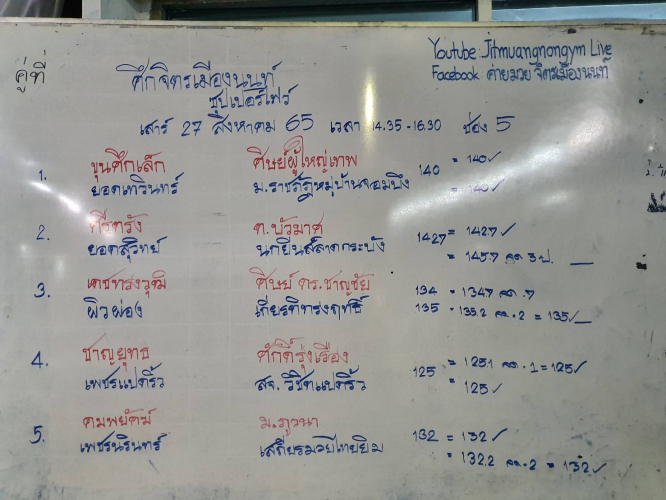 Youtube: Jitmuangnongym Live
Facebook ค่ายมวย จิตรเมืองนนท์
คู่ที่
ศึกจิตรเมืองนนท์
ซุปเปอร์ไฟว์
เสาร์ 27 สิงหาคม 65 เวลา 14.35-16.30 ช่อง 5
1. ขุนศึกเล็ก ศิษย์ผู้ใหญ่เทพ 140 = 140/
ยอดเทวินทร์ ม.ราชภัฏหมู่บ้านจอมบึง = 140/
2. ศรีตรัง ต.บัวมาศ 142.7 = 142.7/
ยอดสุวิทย์ นกยีนส์ลาดกระบัง = 145.7 ลด 3 ป.
3. เดชทรงวุฒิ ศิษย์ ดร.ชาญชัย 134 = 134.7 ลด .7
ผิวผ่อง เกียรติทรงฤทธิ์ 135 = 135.2 ลด .2 = 135/
4. ชาญยุทธ ศักดิ์รุ่งเรือง 125 = 125.1 ลด .1 = 125/
เพชรแปดริ้ว สจ.วิชิตแปดริ้ว = 125/
5. คมพยัคฆ์ ม.ภูวนา 132 = 132/
เพชรนรินทร์ เสถียรมวยไทยยิม = 132.2 ลด .2 = 132/